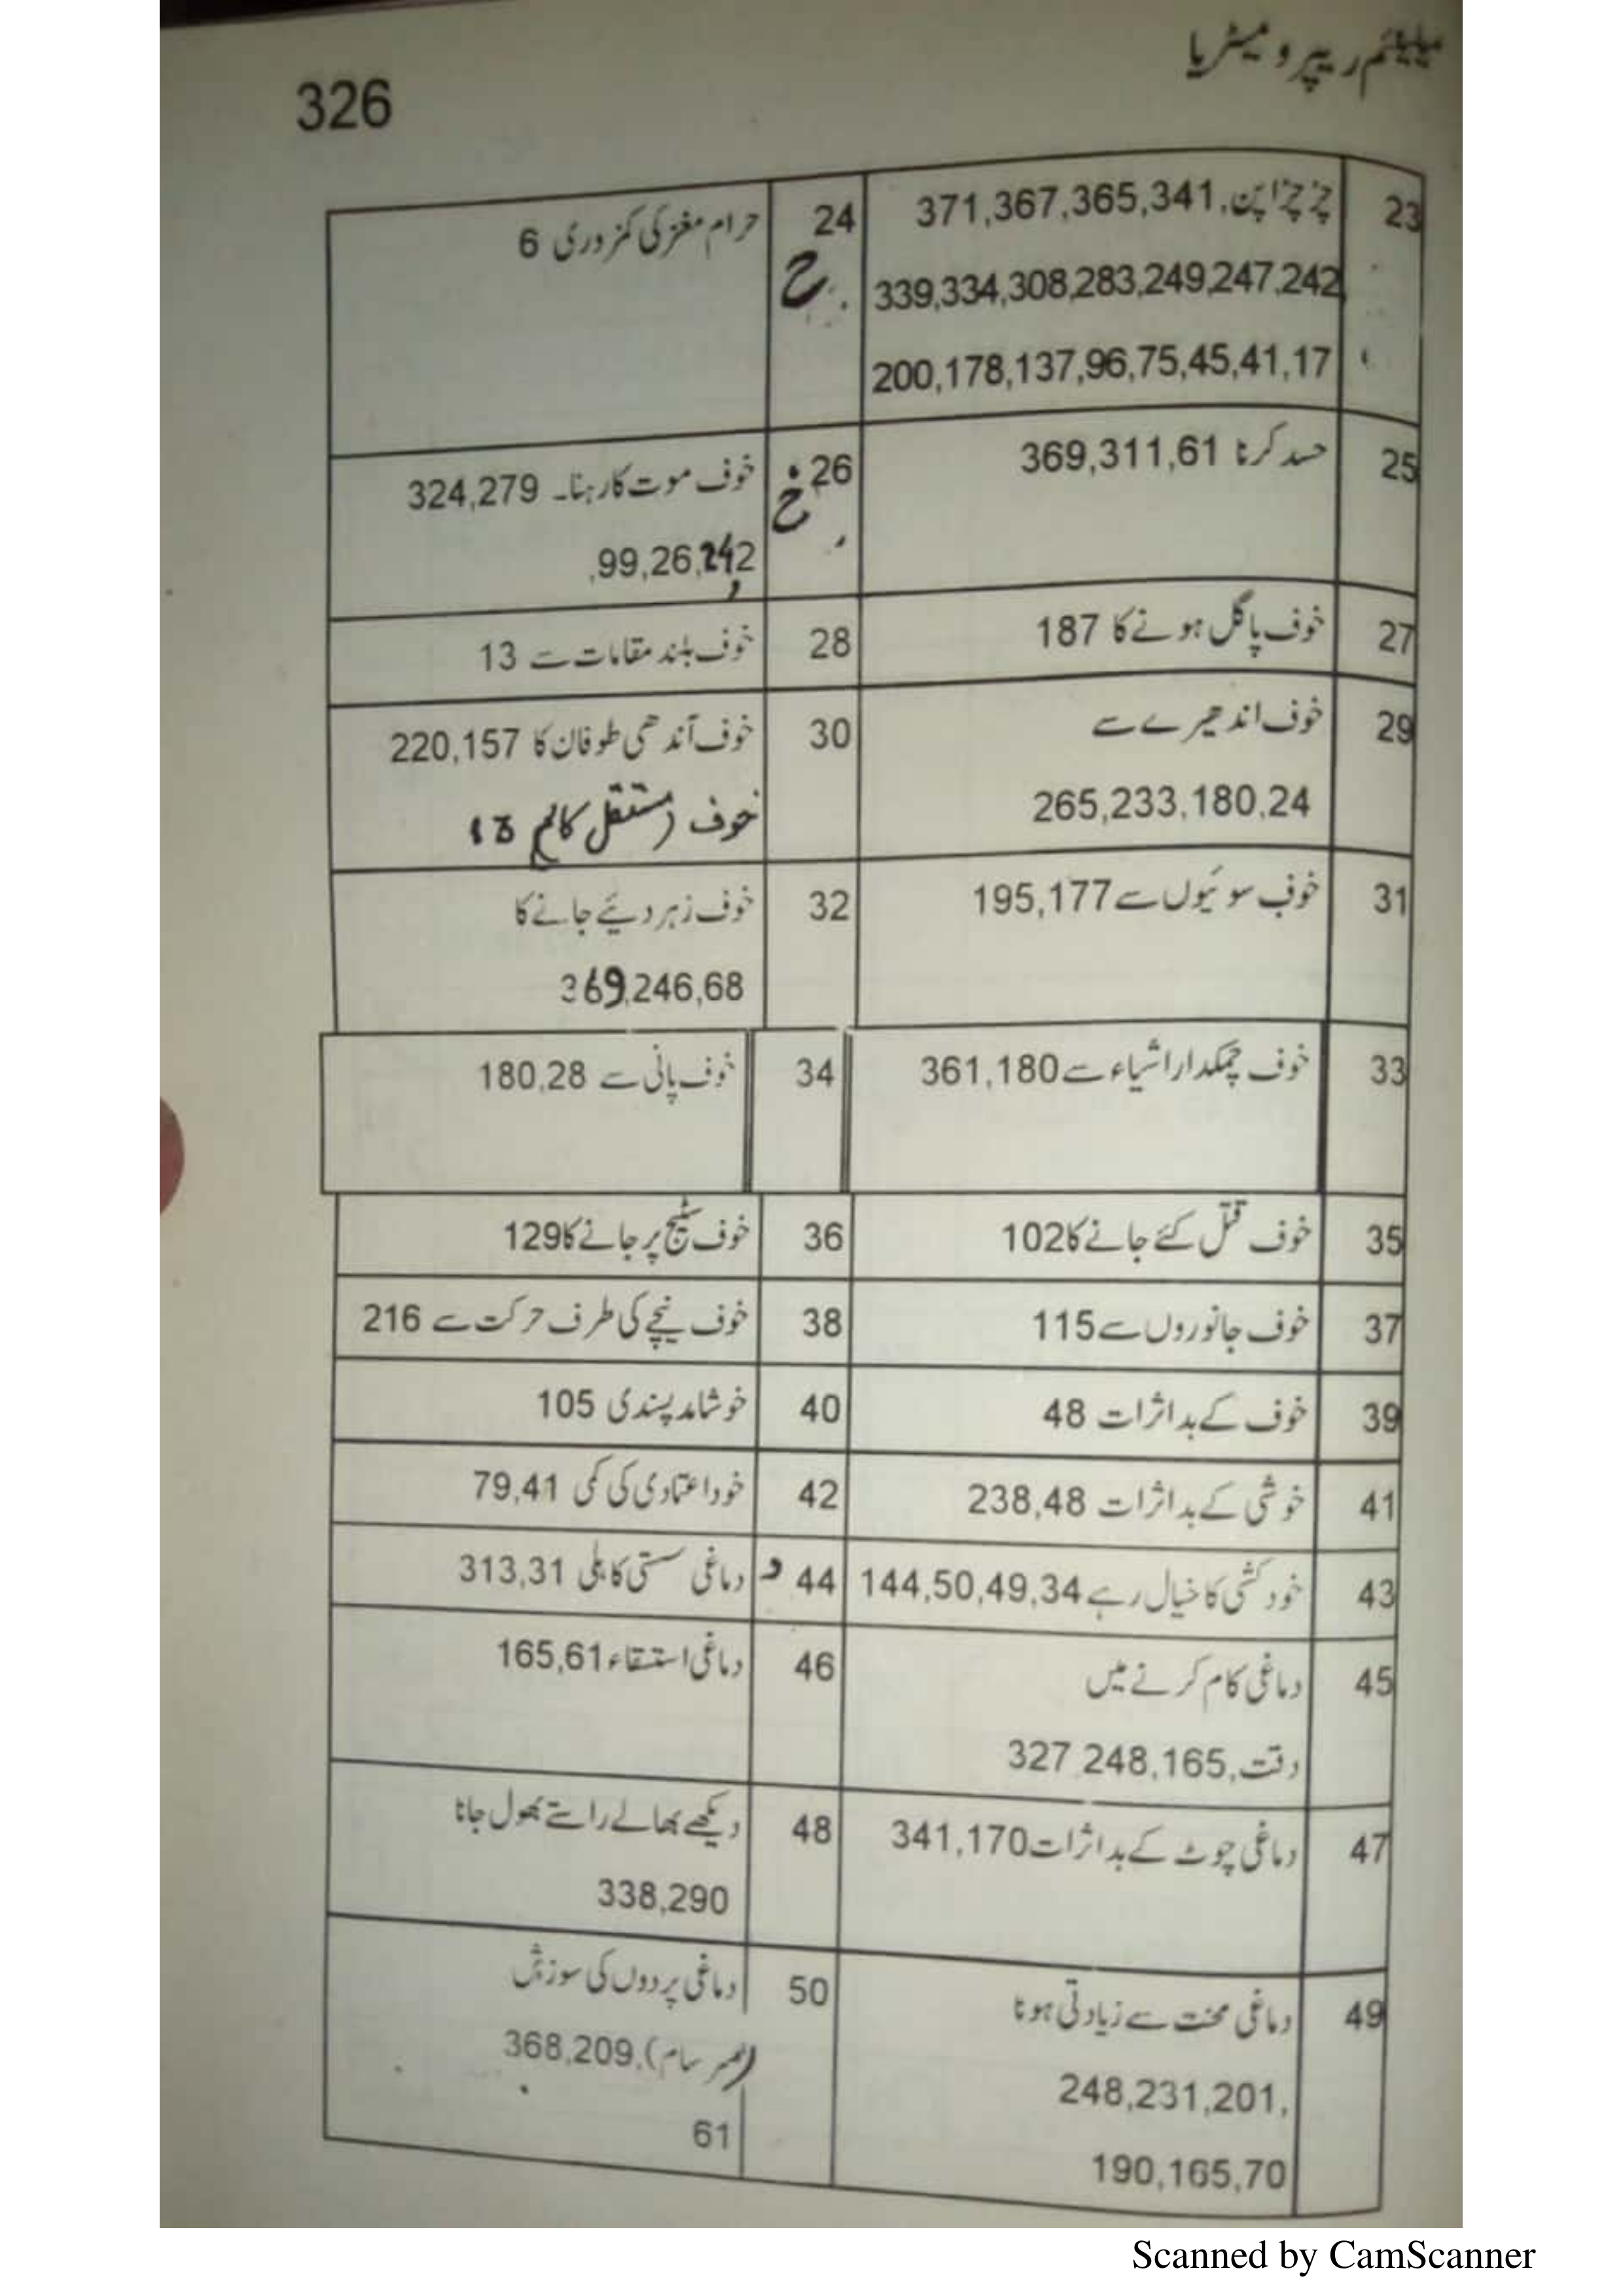 میلینیم ریپرو میٹریا
326
23
چڑچڑاپن,371,367,365,341
339,334,308,283,249,247,242
200,178,137,96,75,45,41,17
24
ح
حرام مغز کی کمزوری 6
25
حسد کرنا 369,311,61
26
خ
خوف موت کا رہنا۔ 324,279
,99,26,242
27
خوف پاگل ہونے کا 187
28
خوف بلند مقامات سے 13
29
خوف اندھیرے سے
265,233,180,24
30
خوف آندھی طوفان کا 220,157
خوف (مستقل کالم
31
خوف سوئیوں سے 195,177
32
خوف زہر دیئے جانے کا
369,246,68
33
خوف چمکدار اشیاء سے 361,180
34
خوف پانی سے 180,28
35
خوف قتل کئے جانے کا 102
36
خوف سٹیج پر جانے کا 129
37
خوف جانوروں سے 115
38
خوف نیچے کی طرف حرکت سے 216
39
خوف کے بد اثرات 48
40
خوشامد پسندی 105
41
خوشی کے بد اثرات 238,48
42
خود اعتمادی کی کمی 79,41
43
خودکشی کا خیال رہے 144,50,49,34
44 د
دماغی سستی کاہلی 313,31
45
دماغی کام کرنے میں
دقت,327 248,165
46
دماغی استسقاء 165,61
47
دماغی چوٹ کے بد اثرات 341,170
48
دیکھے بھالے راستے بھول جانا
338,290
49
دماغی محنت سے زیادتی ہونا
248,231,201,
190,165,70
50
دماغی پردوں کی سوزش
(سرسام),368,209
61
Scanned by CamScanner